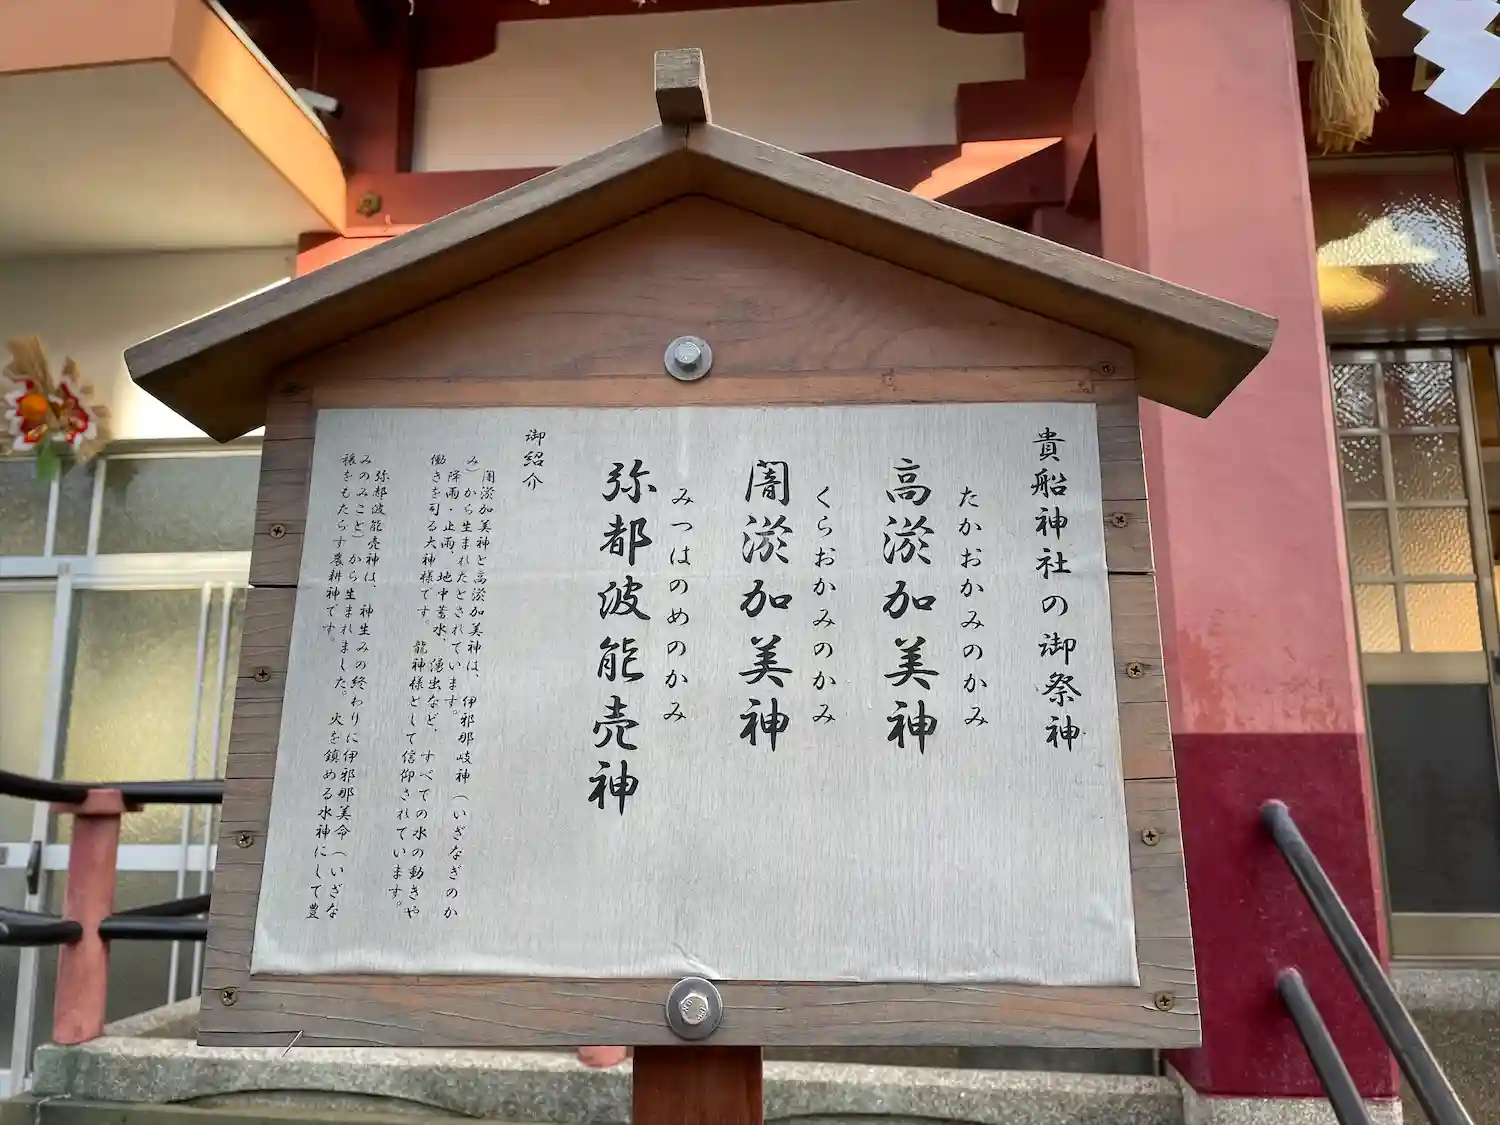 貴船神社の御祭神
たかおかみのかみ
高淤加美神
くらおかみのかみ
闇淤加美神
みつはのめのかみ
弥都波能売神
御紹介
闇淤加美神と高淤加美神は、伊邪那岐神(いざなぎのか
み)から生まれたとされています。
降雨・止雨、地中蓄水、湧出など、すべての水の動きや
働きを司る大神様です。龍神様として信仰されています。
弥都波能売神は、神生みの終わりに伊邪那美命(いざな
みのみこと)から生まれました。火を鎮める水神にして豊
穣をもたらす農耕神です。